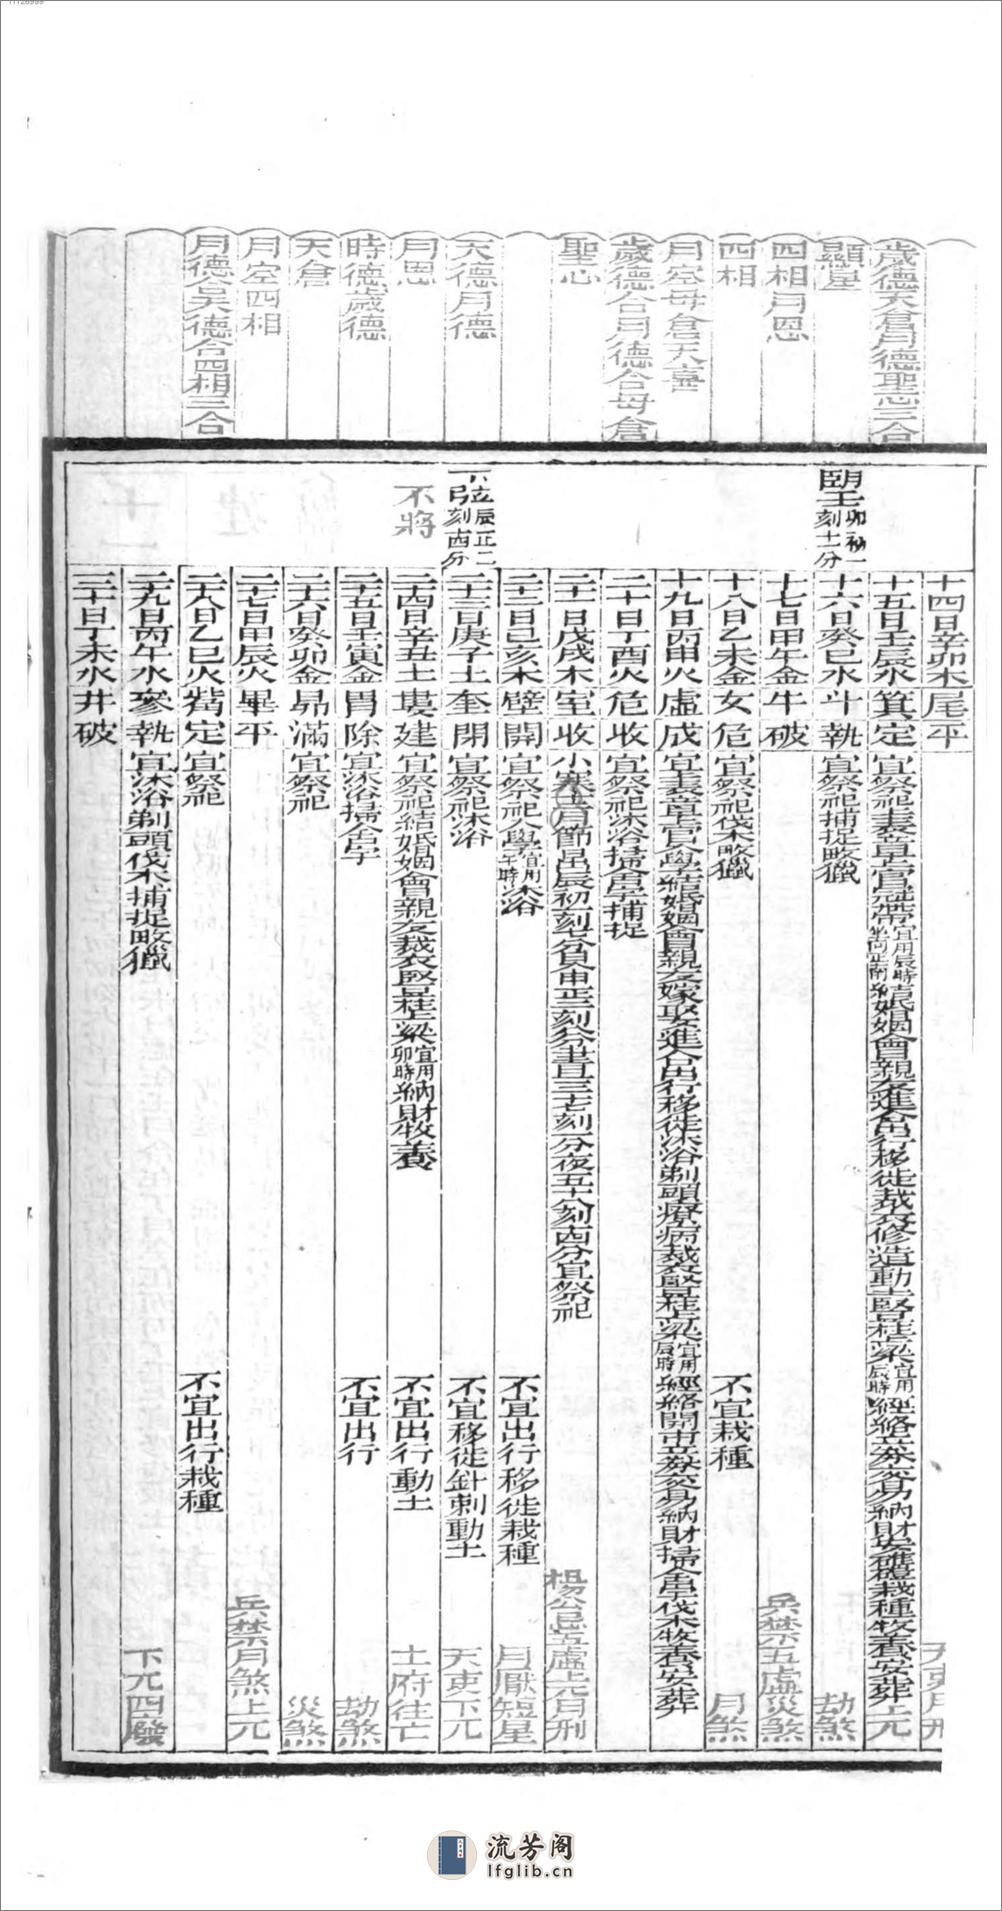 11128999
十四日辛卯木尾平
天吏月刑
歲德天倉月德聖心三合
十五日壬辰水箕定宜祭祀上表章上官冠帶宜用辰時坐向正南結婚姻會親友進人口出行移徙裁衣修造動土豎柱上梁宜用辰時經絡立券交易納財安碓磑栽種牧養安葬上元
顯星
望卯初一刻十一分
十六日癸巳水斗執宜祭祀捕捉畋獵
劫煞
四相月恩
十七日甲午金牛破
兵禁五虛災煞
四相
十八日乙未金女危宜祭祀伐木畋獵
不宜栽種
月煞
月空母倉天喜
十九日丙申火虛成宜上表章上官入學結婚姻會親友嫁娶進人口出行移徙沐浴剃頭療病裁衣豎柱上梁宜用辰時經絡開市立券交易納財掃舍宇伐木牧養安葬
歲德合月德合母倉
二十日丁酉火危收宜祭祀沐浴掃舍宇捕捉
聖心
二十一日戊戌木室收小寒十二月節日出辰初一刻七分日入申正三刻八分晝三十七刻分夜五十八刻四分宜祭祀
楊公忌五虛上元月刑
二十二日己亥木壁開宜祭祀入學宜用午時沐浴
不宜出行移徙栽種
月厭短星
天德月德
下弦辰正二刻酉分
二十三日庚子土奎閉宜祭祀沐浴
不宜移徙針刺動土
天吏下元
月恩
不將
二十四日辛丑土婁建宜祭祀結婚姻會親友裁衣豎柱上梁宜用卯時納財牧養
不宜出行動土
土府往亡
時德歲德
二十五日壬寅金胃除宜沐浴掃舍宇
不宜出行
劫煞
天倉
二十六日癸卯金昴滿宜祭祀
災煞
月空四相
二十七日甲辰火畢平
兵禁月煞上元
月德合天德合四相三合
二十八日乙巳火觜定宜祭祀
不宜出行栽種
二十九日丙午水參執宜沐浴剃頭伐木捕捉畋獵
下元四廢
三十日丁未水井破
流芳阁
lfglib.cn